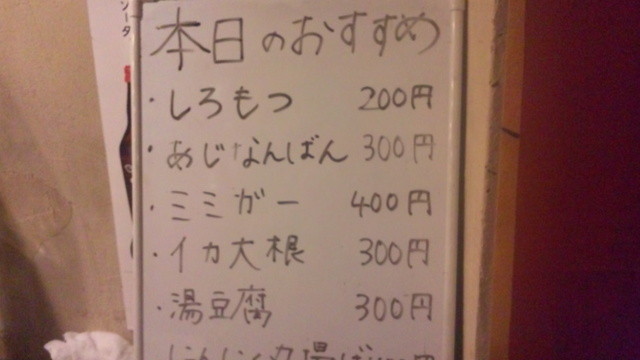 本日のおすすめ
・しろもつ 200円
・あじなんばん 300円
・ミミガー 400円
・イカ大根 300円
・湯豆腐 300円